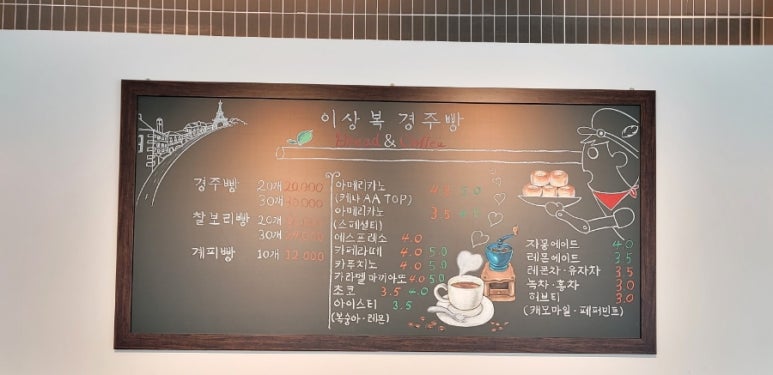 이상복 경주빵
Bread & Coffee
경주빵 20개 20,000
30개 30,000
찰보리빵 20개
30개
계피빵 10개 12,000
아메리카노 4.5 5.0
(케냐 AA TOP)
아메리카노 3.5 4.0
(스페셜티)
에스프레소 4.0
카페라떼 4.0 5.0
카푸치노 4.0 5.0
카라멜 마끼아또 4.0 5.0
초코 3.5 4.0
아이스티 3.5
(복숭아·레몬)
자몽에이드 4.0
레몬에이드 3.5
레몬차·유자차 3.5
녹차·홍차 3.0
허브티 3.0
(캐모마일·페퍼민트)